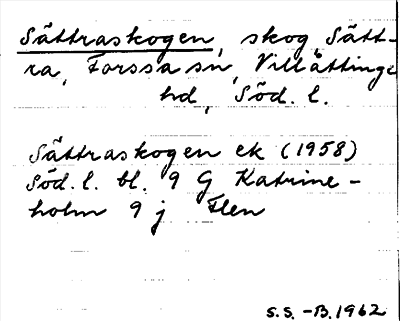 Sättraskogen, skog, Sätt-
ra, Forssa sn, Villåttinge
hd, Söd. l.
Sättraskogen ek (1958)
Söd. l. bl. 9 G Katrine-
holm 9 j Flen
S.S. -B. 1962